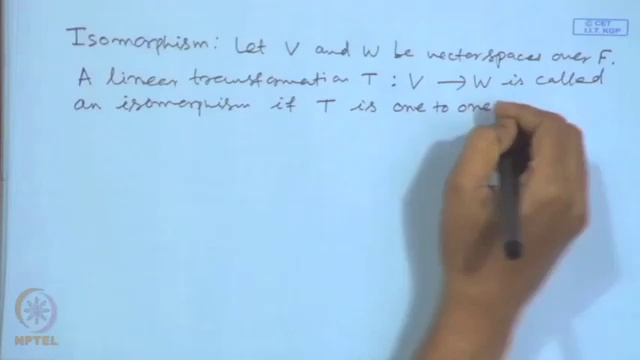 © CET
I.I.T. KGP
Isomorphism: Let V and W be vector spaces over F.
A linear transformation T : V → W is called
an isomorphism if T is one to one
NPTEL